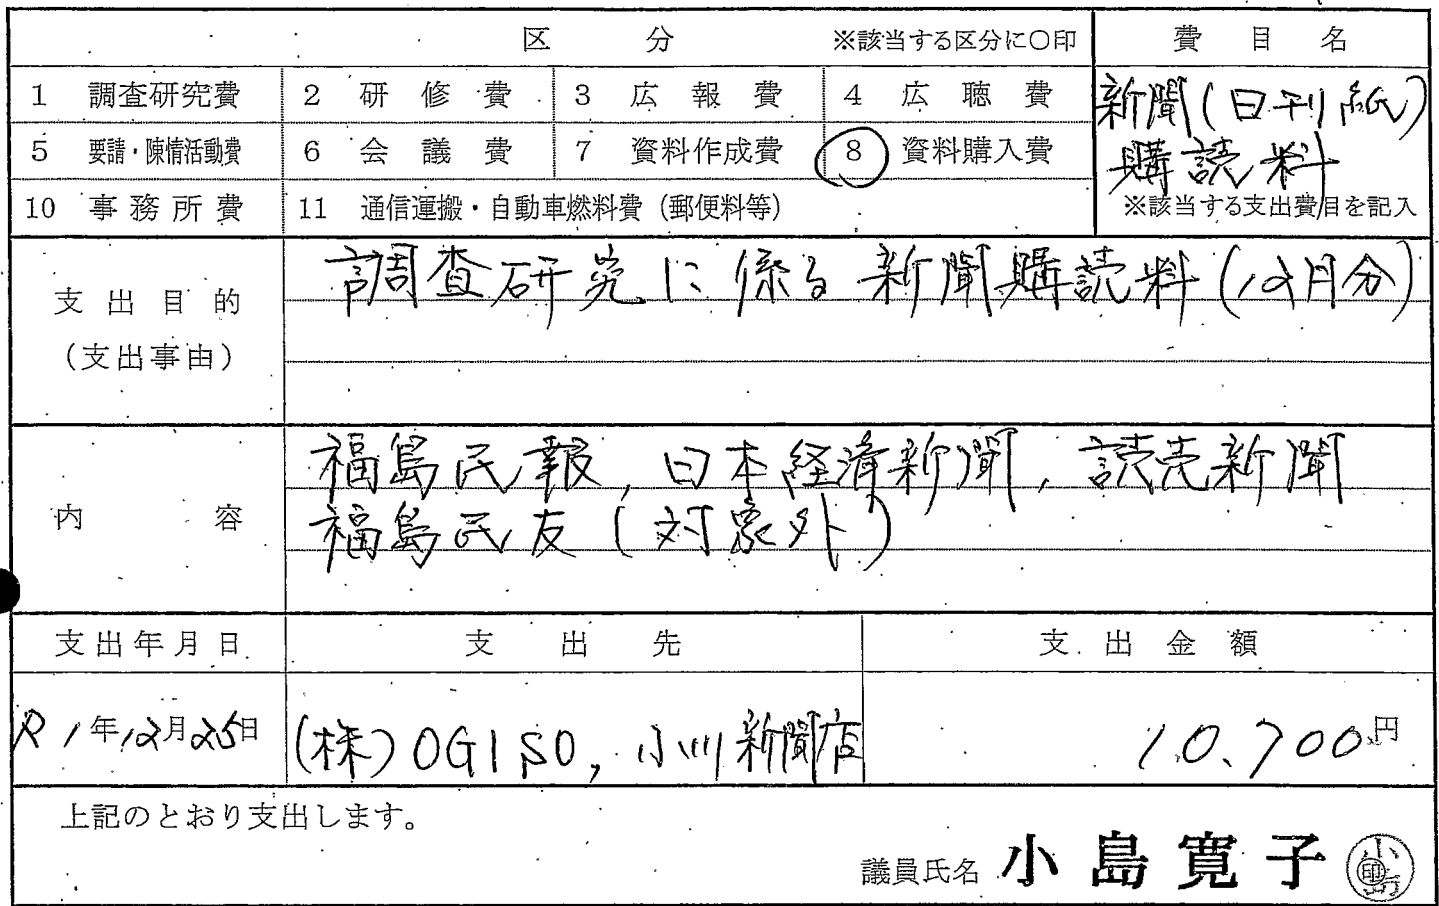 区 分 ※該当する区分に○印 費 目 名
1 調査研究費 2 研 修 費 3 広 報 費 4 広 聴 費 新聞(日刊紙)
5 要請・陳情活動費 6 会 議 費 7 資料作成費 8 資料購入費 購読料
10 事 務 所 費 11 通信運搬・自動車燃料費(郵便料等) ※該当する支出費目を記入
支 出 目 的 調査研究に係る新聞購読料(12月分)
(支出事由)
福島民報, 日本経済新聞, 読売新聞
内 容 福島民友(対象外)
支出年月日 支 出 先 支 出 金 額
R1年12月25日 (株)OGISO, 小川新聞店 10.700円
上記のとおり支出します。
議員氏名 小島寛子 小島印